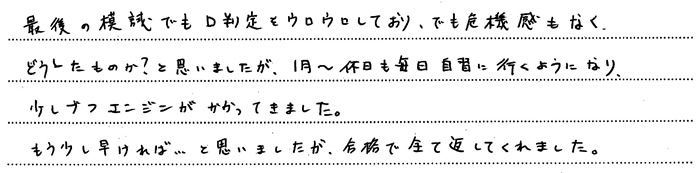 最後の模試でもD判定をウロウロしており、でも危機感もなく、
どうしたものか?と思いましたが、1月～休日も毎日自習に行くようになり、
少しずつエンジンがかかってきました。
もう少し早ければ…と思いましたが、合格で全て返してくれました。